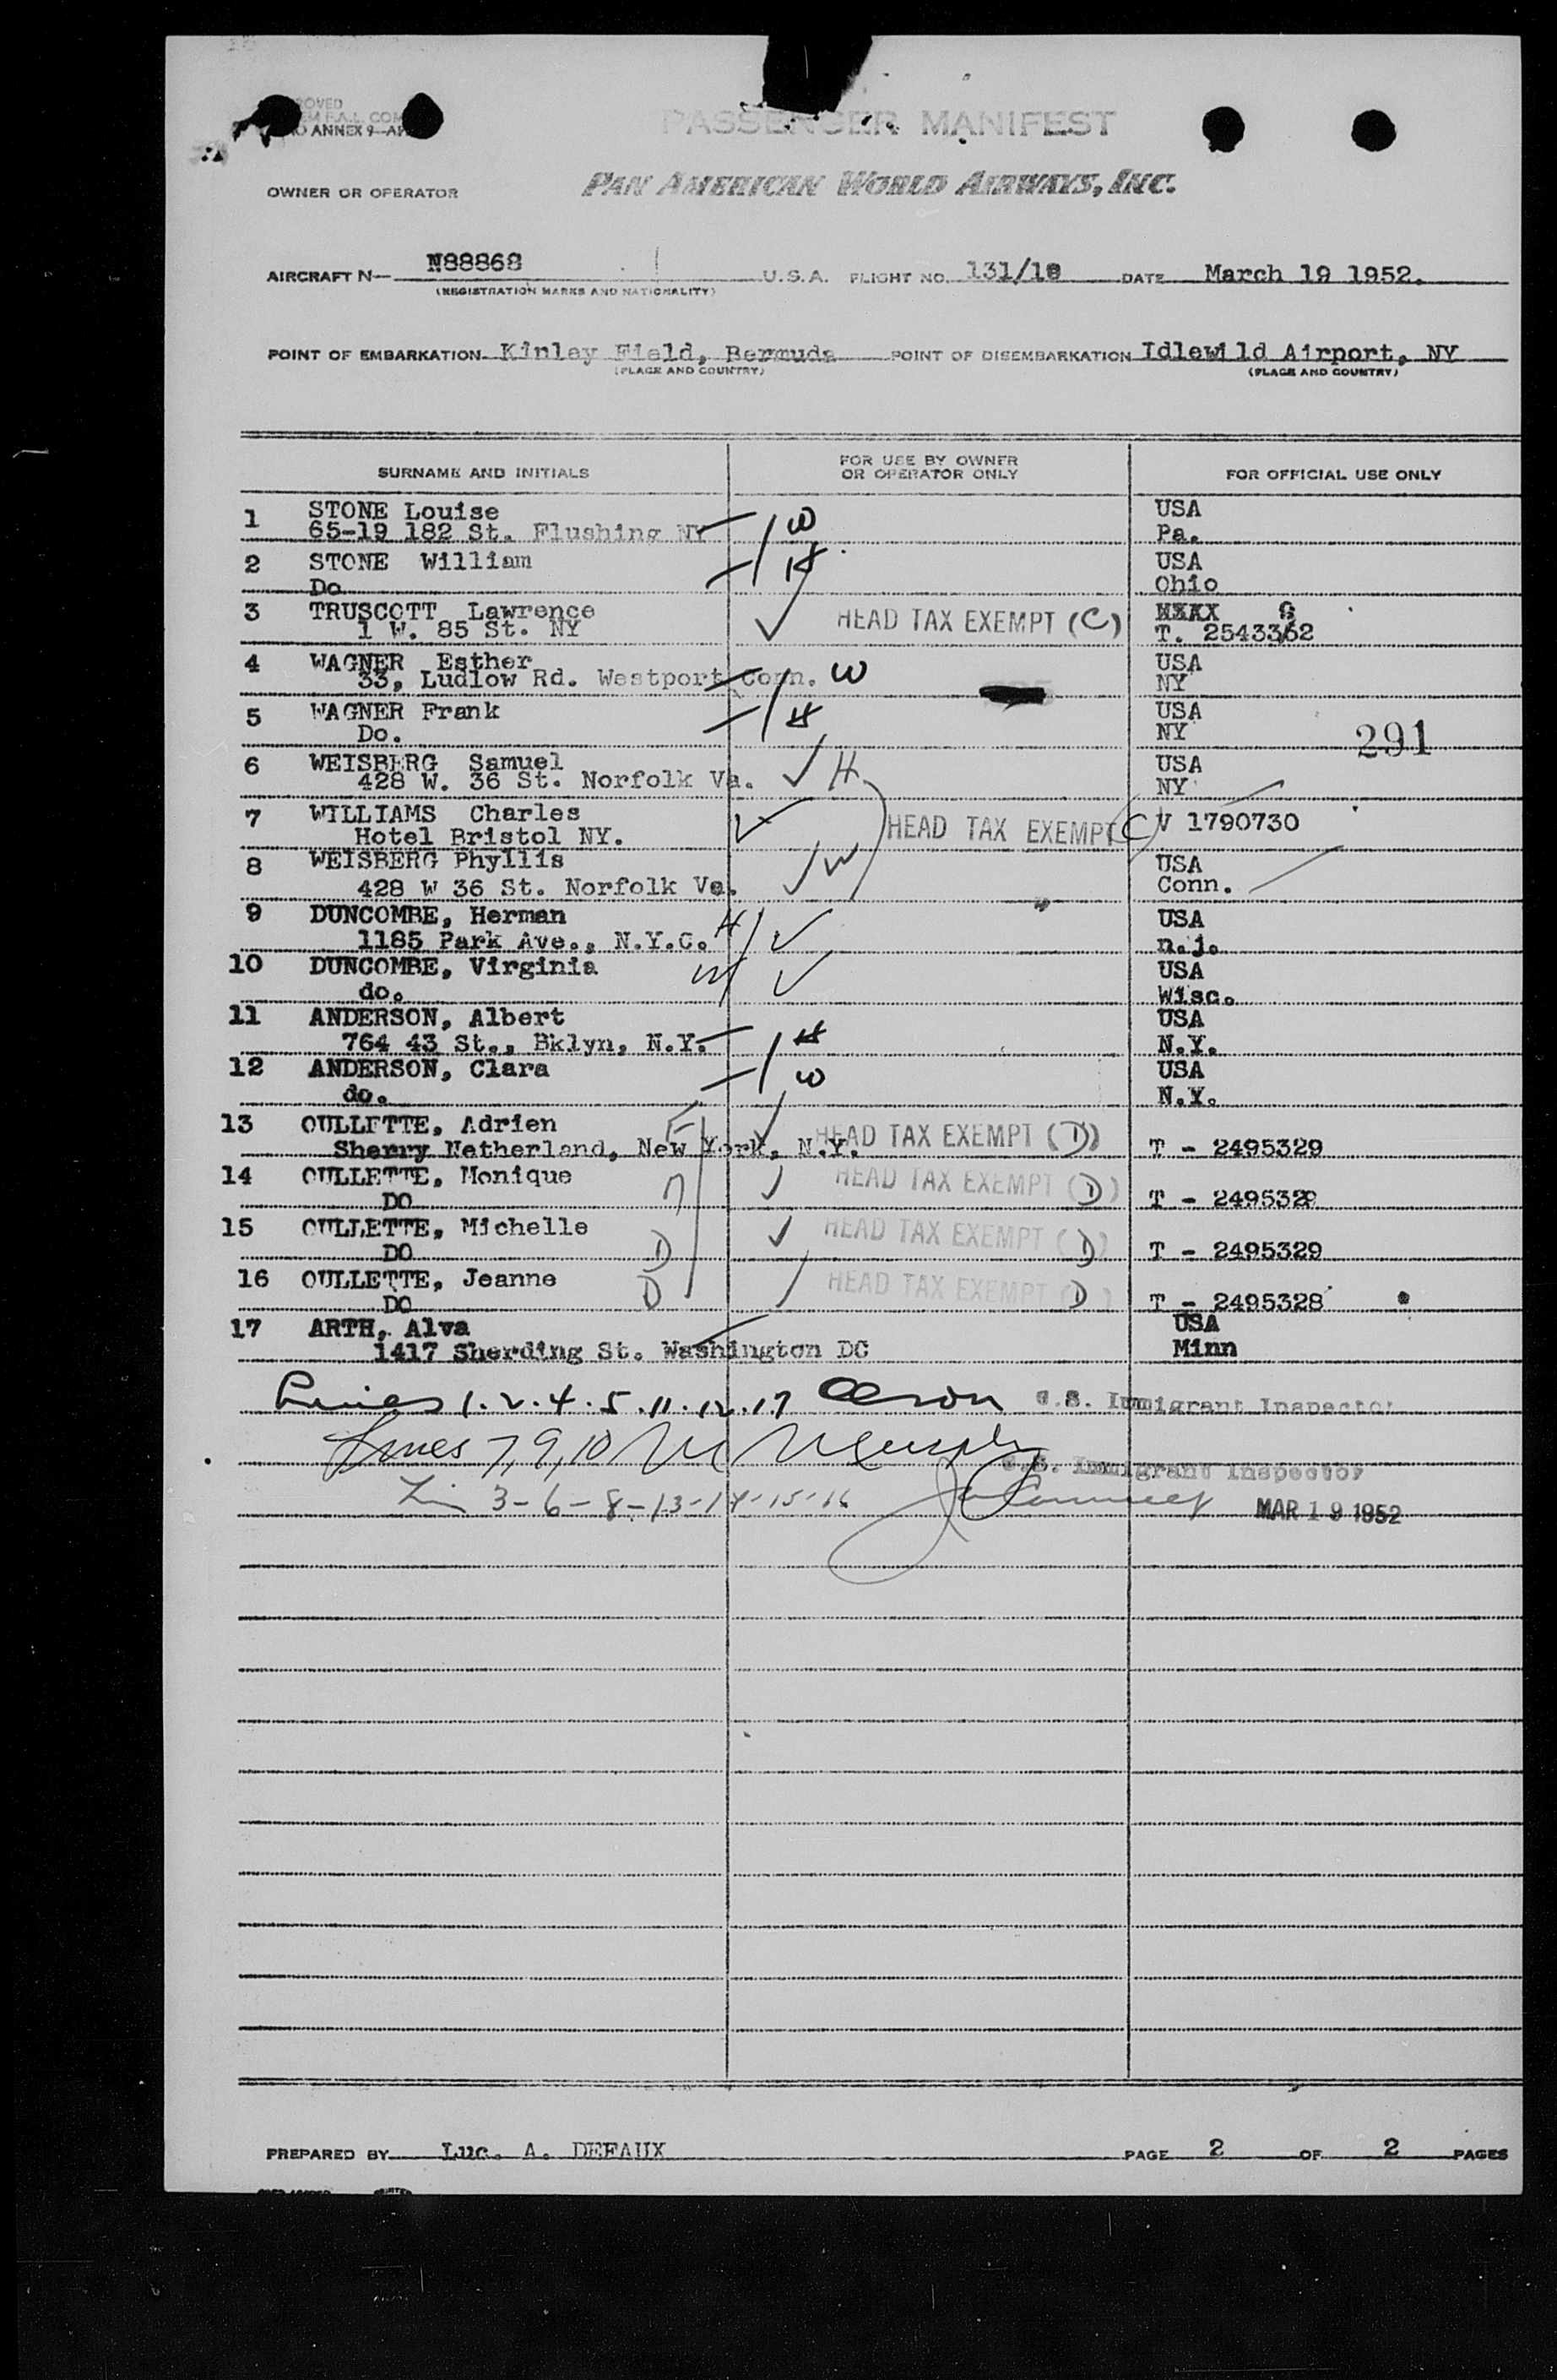 ANNEX 9
PASSENGER MANIFEST
OWNER OR OPERATOR PAN AMERICAN WORLD AIRWAYS, INC.
AIRCRAFT N— N88868 U.S.A. FLIGHT NO. 131/18 DATE March 19 1952.
(REGISTRATION MARKS AND NATIONALITY)
POINT OF EMBARKATION Kinley Field, Bermuda POINT OF DISEMBARKATION Idlewild Airport, NY
(PLACE AND COUNTRY) (PLACE AND COUNTRY)
SURNAME AND INITIALS FOR USE BY OWNER OR OPERATOR ONLY FOR OFFICIAL USE ONLY
1 STONE Louise W USA
65-19 182 St. Flushing NY Pa.
2 STONE William H USA
Do Ohio
3 TRUSCOTT Lawrence HEAD TAX EXEMPT (C)
1 W. 85 St. NY T. 2543362
4 WAGNER Esther W USA
33, Ludlow Rd. Westport Conn. NY
5 WAGNER Frank H USA
Do. NY 291
6 WEISBERG Samuel H USA
428 W. 36 St. Norfolk Va. NY
7 WILLIAMS Charles HEAD TAX EXEMPT (C) V 1790730
Hotel Bristol NY.
8 WEISBERG Phyllis W USA
428 W 36 St. Norfolk Va. Conn.
9 DUNCOMBE, Herman H USA
1185 Park Ave., N.Y.C. n.j.
10 DUNCOMBE, Virginia W USA
do. Wisc.
11 ANDERSON, Albert H USA
764 43 St., Bklyn, N.Y. N.Y.
12 ANDERSON, Clara W USA
do. N.Y.
13 OULLETTE, Adrien F HEAD TAX EXEMPT (D)
Sherry Netherland, New York, N.Y. T - 2495329
14 OULLETTE, Monique HEAD TAX EXEMPT (D)
DO T - 2495329
15 OULLETTE, Michelle D HEAD TAX EXEMPT (D)
DO T - 2495329
16 OULLETTE, Jeanne D HEAD TAX EXEMPT (D)
DO T - 2495328
17 ARTH, Alva USA
1417 Sherding St. Washington DC Minn
Lines 1.2.4.5.11.12.17 U.S. Immigrant Inspector
Lines 7,9,10 U.S. Immigrant Inspector
3-6-8-13-14-15-16 MAR 19 1952
PREPARED BY Luc. A. DEFAUX PAGE 2 OF 2 PAGES